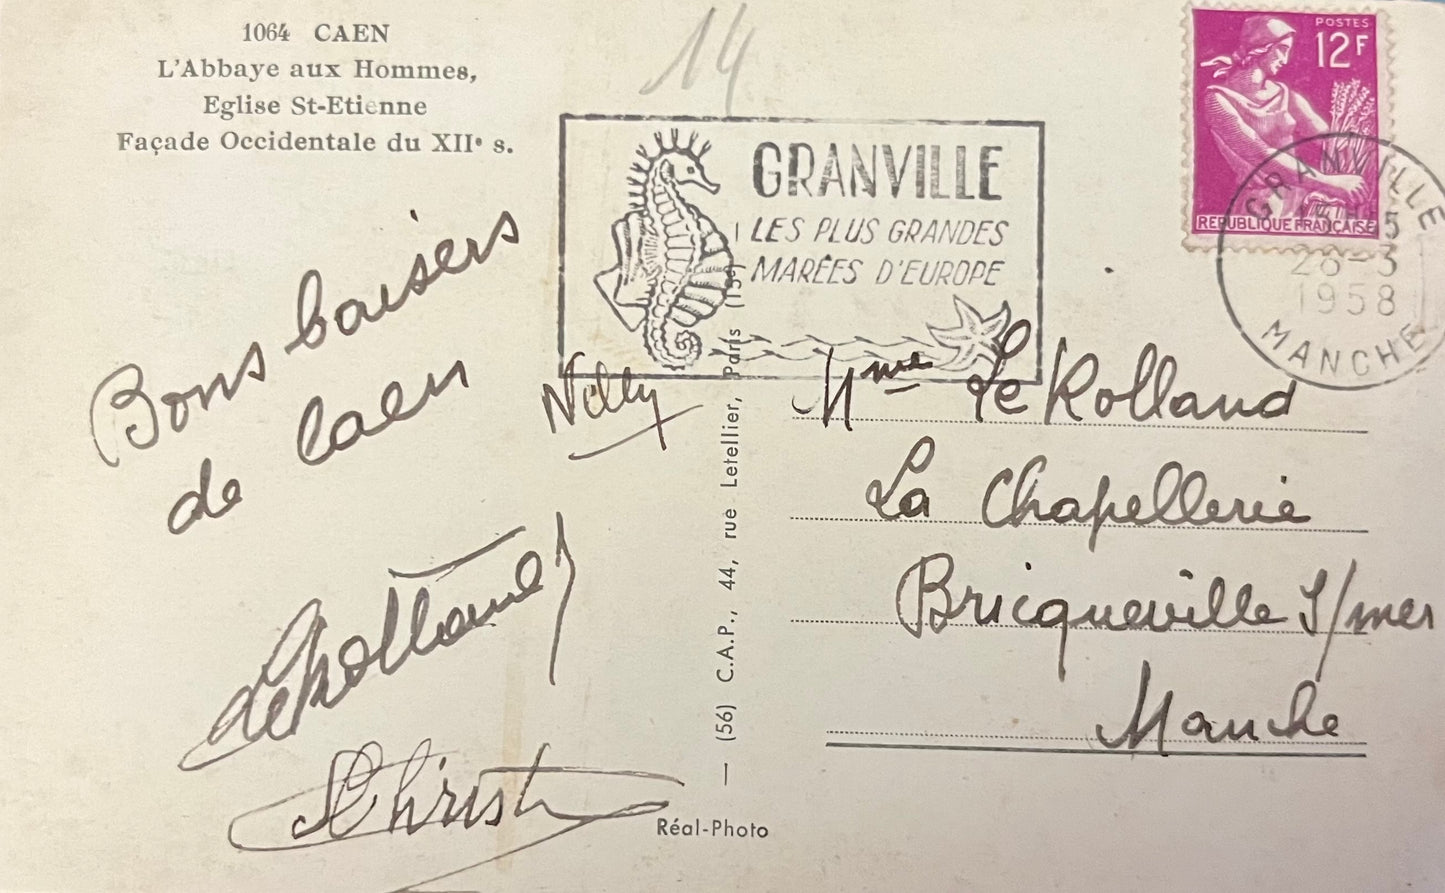 1064 CAEN
L'Abbaye aux Hommes,
Eglise St-Etienne
Façade Occidentale du XIIe s.
14
GRANVILLE
LES PLUS GRANDES
MARÉES D'EUROPE
POSTES
12F
REPUBLIQUE FRANÇAISE
GRANVILLE
28-3
1958
MANCHE
Bons baisers
de Caen
Le Rolland
Christ
(56) C.A.P., 44, rue Letellier, Paris (15e)
Réal-Photo
Mme Le Rolland
La Chapellerie
Bricqueville S/mer
Manche